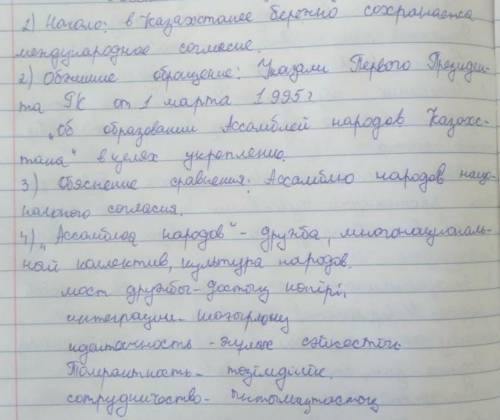 1) Начало: в Казахстане бережно сохранается
международное согласие.
2) Обжшие обращение: Указали Первого Президен-
та РК от 1 марта 1995г
„Об образовании Ассамблей народов Казахс-
тана" в целях укреплению.
3) Обяснение сравнения: Ассамблю народов наци-
нального согласия.
4) „Ассамблоя народов" - дружба, многонациональ-
ный коллектив, культура народов.
мост дружбы - достық көпірі,
интеграции -
идентичность -
Толерантность - төзімділік.
сотрудничество - ынтымақтастық